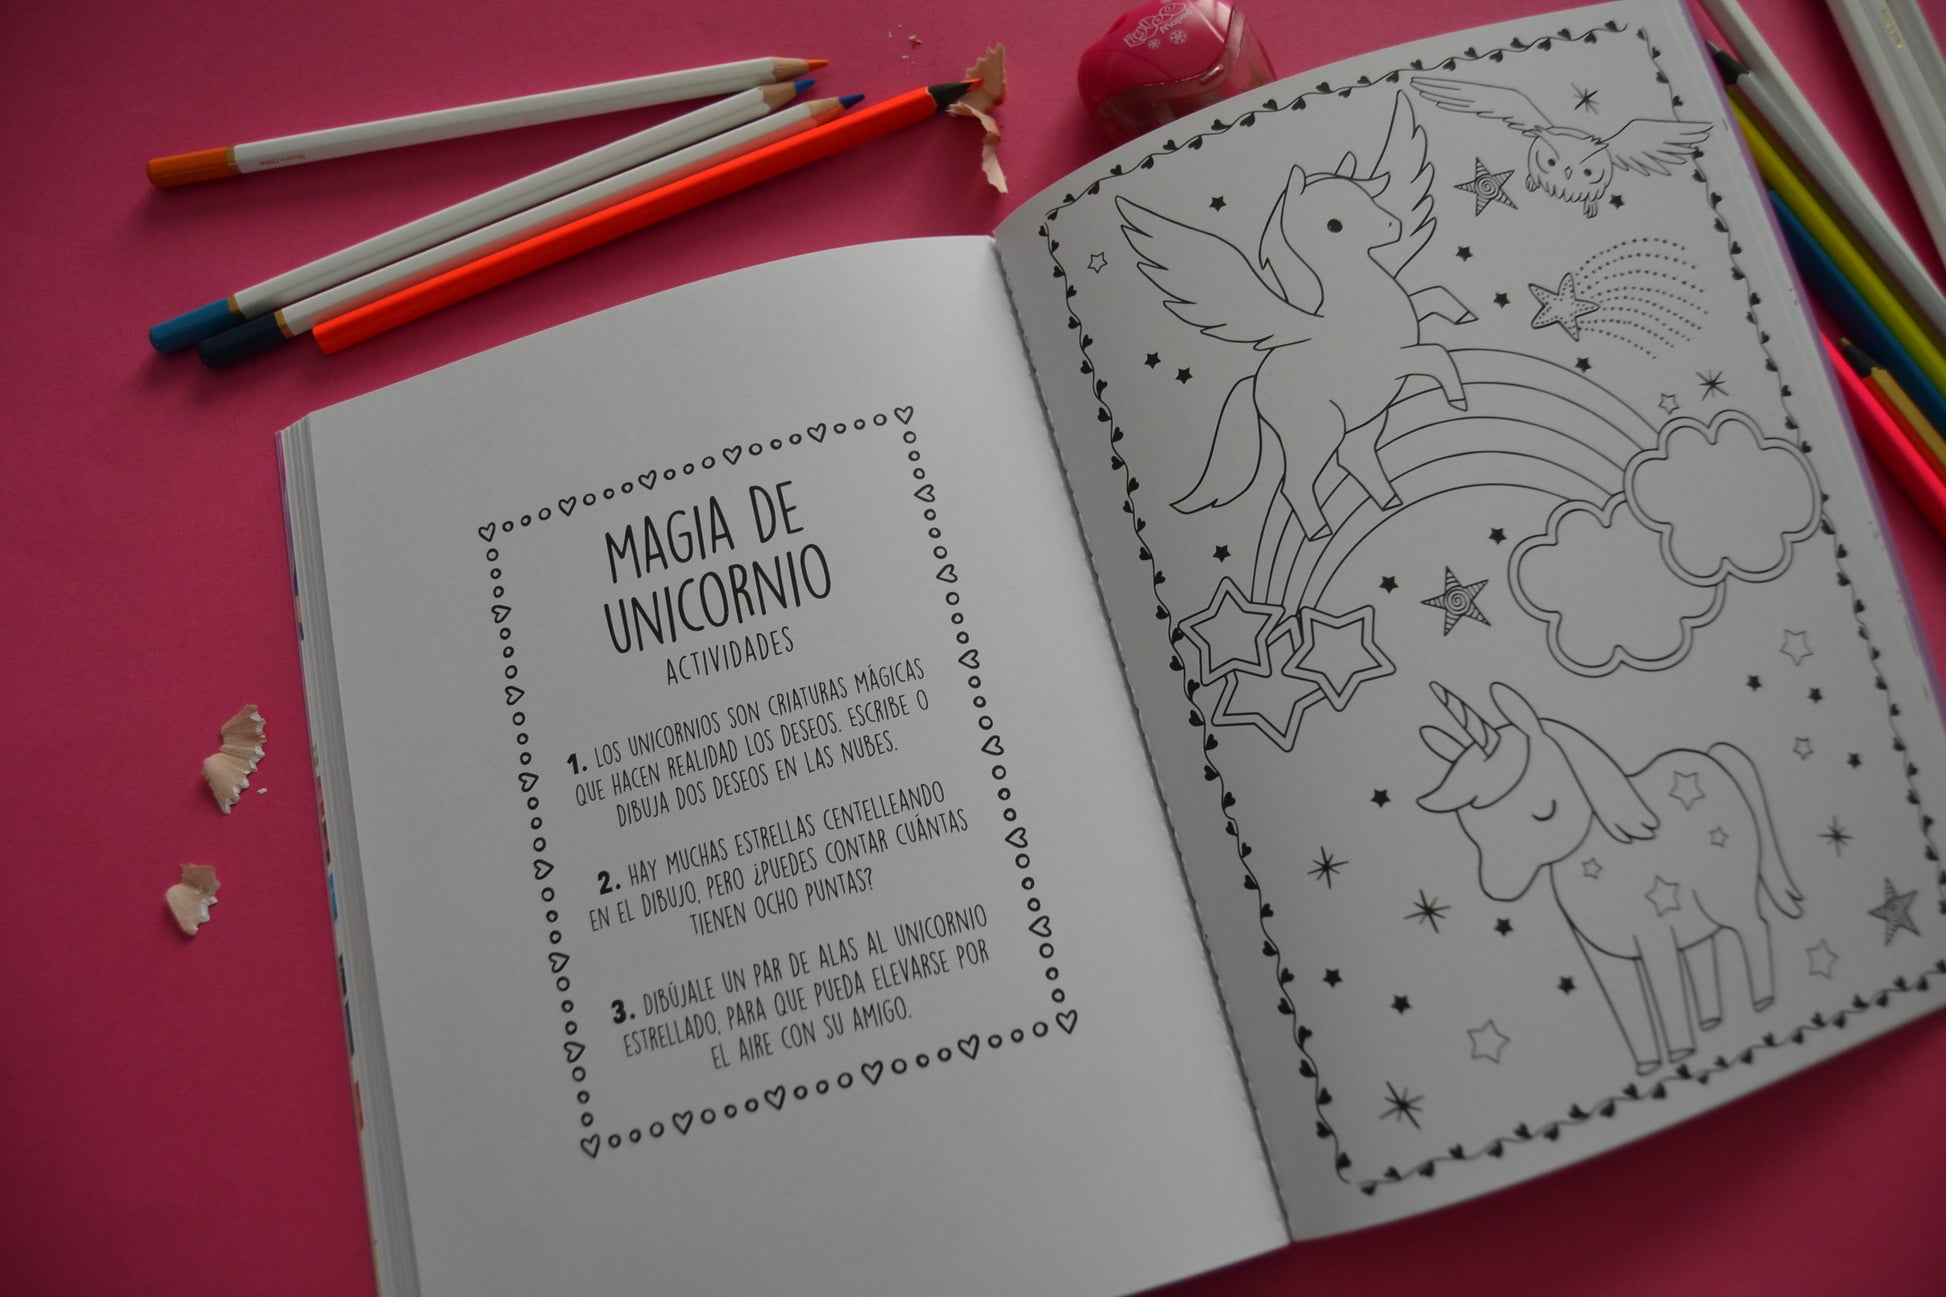 MAGIA DE
UNICORNIO
ACTIVIDADES
1. LOS UNICORNIOS SON CRIATURAS MÁGICAS
QUE HACEN REALIDAD LOS DESEOS. ESCRIBE O
DIBUJA DOS DESEOS EN LAS NUBES.
2. HAY MUCHAS ESTRELLAS CENTELLEANDO
EN EL DIBUJO, PERO ¿PUEDES CONTAR CUÁNTAS
TIENEN OCHO PUNTAS?
3. DIBÚJALE UN PAR DE ALAS AL UNICORNIO
ESTRELLADO, PARA QUE PUEDA ELEVARSE POR
EL AIRE CON SU AMIGO.
Made in China
Maped